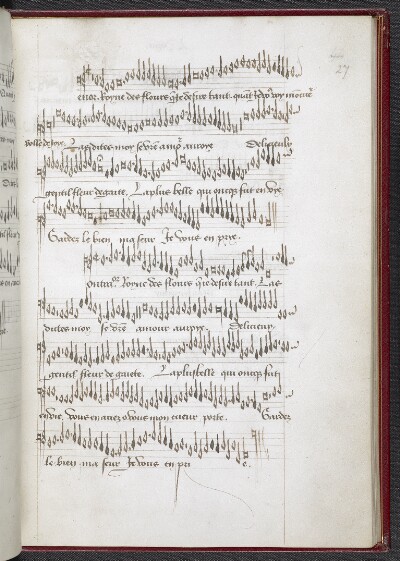 27
enor. Royne des flours q̄ Je desire tant. quāt Je vo voy
belle de Joye. Las dites moy se vr̄e amor̄ auroye Delicieulx
gentil fleur de gaite. La plus belle qui oncq̄s fut en vye
Gardez le bien ma seur Je vous en prye.
ontraor Royne des flours q̄ Je desire tant. Las
dictes moy se vr̄e amour auroye. Delicieux
gentil fleur de gaiete. La plus belle qui oncq̄s fut
en vie, vous en avez o vous mon cueur porte. Gardez
le bien ma seur Je vous en pri e.